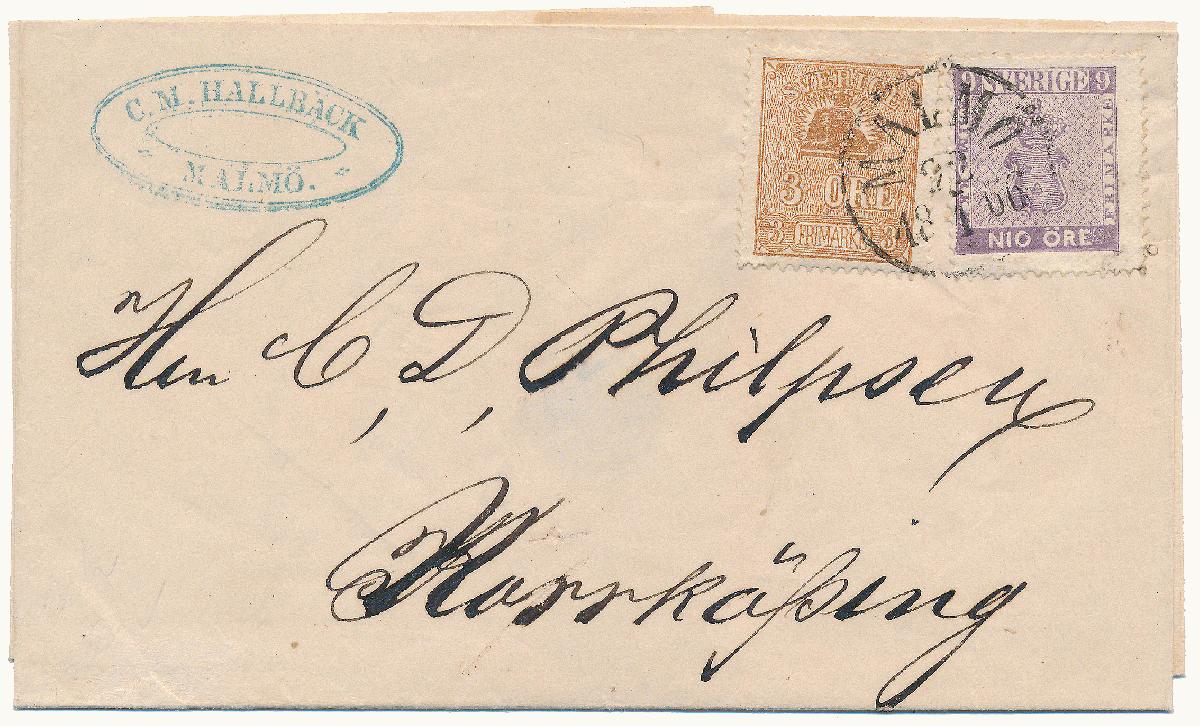 C. M. HALLBÄCK
MALMÖ.
SVERIGE
3 ÖRE
3 FRIMÄRKE 3
9 SVERIGE 9
FRIMÄRKE
NIO ÖRE
MALMÖ
22
18
Herr C, D, Philpsen
Norrköping